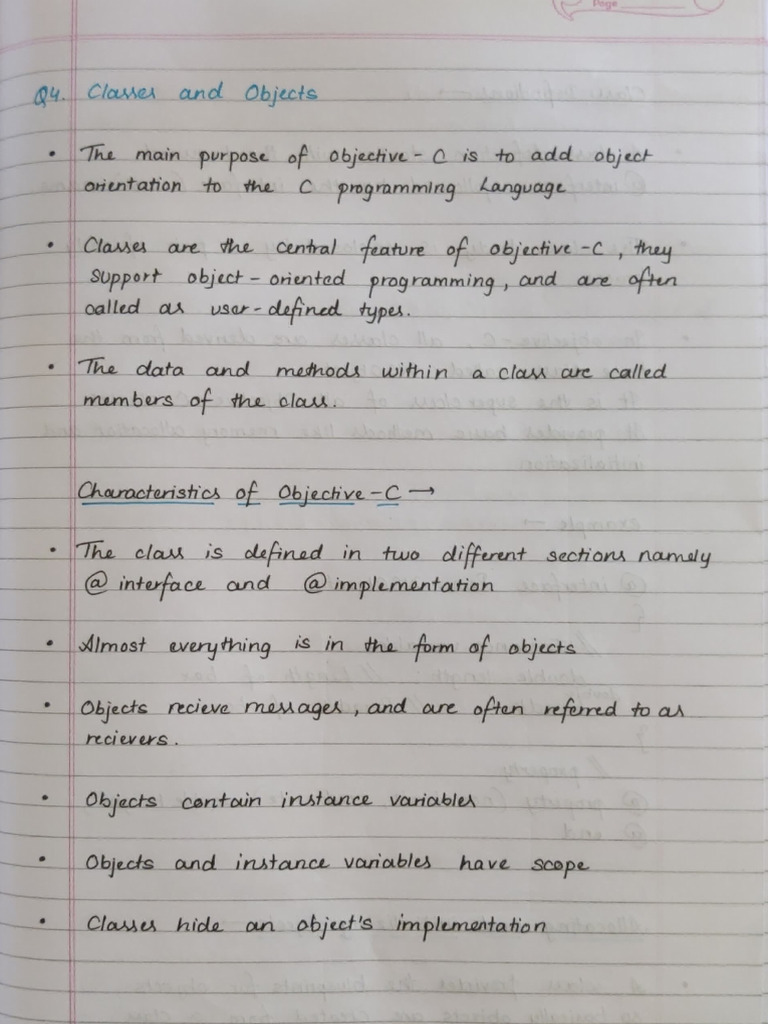 Page
Q4. Classes and Objects
• The main purpose of objective-C is to add object
orientation to the C programming Language
• Classes are the central feature of objective-C, they
support object-oriented programming, and are often
called as user-defined types.
• The data and methods within a class are called
members of the class.
Characteristics of Objective-C →
• The class is defined in two different sections namely
@ interface and @ implementation
• Almost everything is in the form of objects
• Objects recieve messages, and are often referred to as
recievers.
• Objects contain instance variables
• Objects and instance variables have scope
• Classes hide an object's implementation